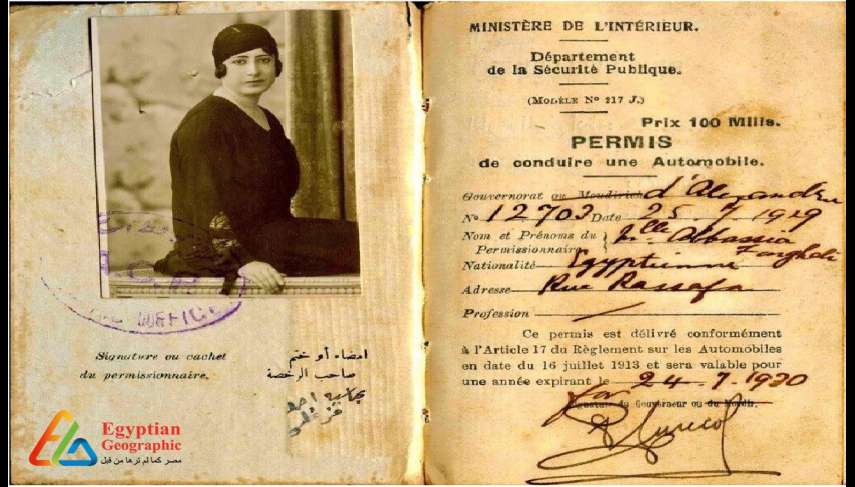 Signature ou cachet
du permissionnaire.
امضاء أو ختم
صاحب الرخصة
Egyptian
Geographic
مصر كما لم ترها من قبل
MINISTÈRE DE L'INTÉRIEUR.
Département
de la Sécurité Publique.
(MODÈLE No 217 J.)
Prix 100 Mills.
PERMIS
de conduire une Automobile.
Gouvernorat ou Moudirieh d'Alexandrie
No 12703 Date 25.7 1929
Nom et Prénoms du Mlle Abbassia
Permissionnaire
Nationalité Egyptienne
Adresse Rue Rassafa
Profession /
Ce permis est délivré conformément
à l'Article 17 du Règlement sur les Automobiles
en date du 16 juillet 1913 et sera valable pour
une année expirant le 24.7.1930
Signature du Gouverneur ou du Moudir.